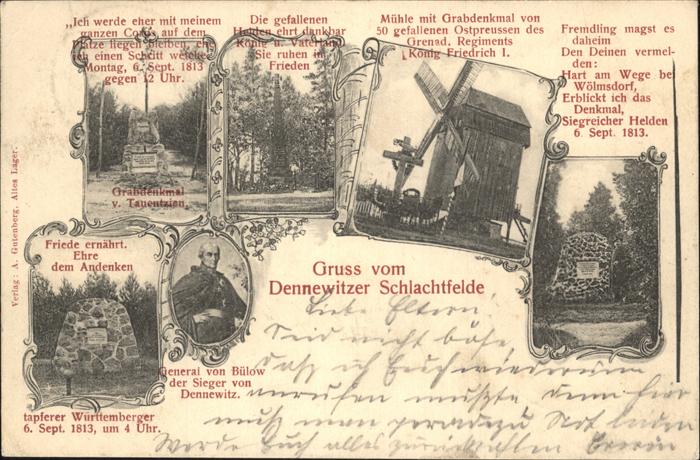 „Ich werde eher mit meinem
ganzen Corps auf dem
Platze liegen bleiben, ehe
ich einen Schritt weiche.
Montag, 6. Sept. 1813
gegen 12 Uhr.
Grabdenkmal
v. Tauentzien.
Die gefallenen
Helden ehrt dankbar
König u. Vaterland
Sie ruhen in
Frieden
Mühle mit Grabdenkmal von
50 gefallenen Ostpreussen des
Grenad. Regiments
König Friedrich I.
Fremdling magst es
daheim
Den Deinen vermel-
den:
Hart am Wege bei
Wölmsdorf,
Erblickt ich das
Denkmal,
Siegreicher Helden
6. Sept. 1813.
Verlag: A. Gutenberg, Altes Lager.
Friede ernährt.
Ehre
dem Andenken
tapferer Württemberger
6. Sept. 1813, um 4 Uhr.
General von Bülow
der Sieger von
Dennewitz.
Gruss vom
Dennewitzer Schlachtfelde
Liebe Eltern!
Seid nicht böse
daß ich Euch wiederum
anrufen mußte, denn hier
muß man geradezu Not leiden
Werde Euch alles zurück